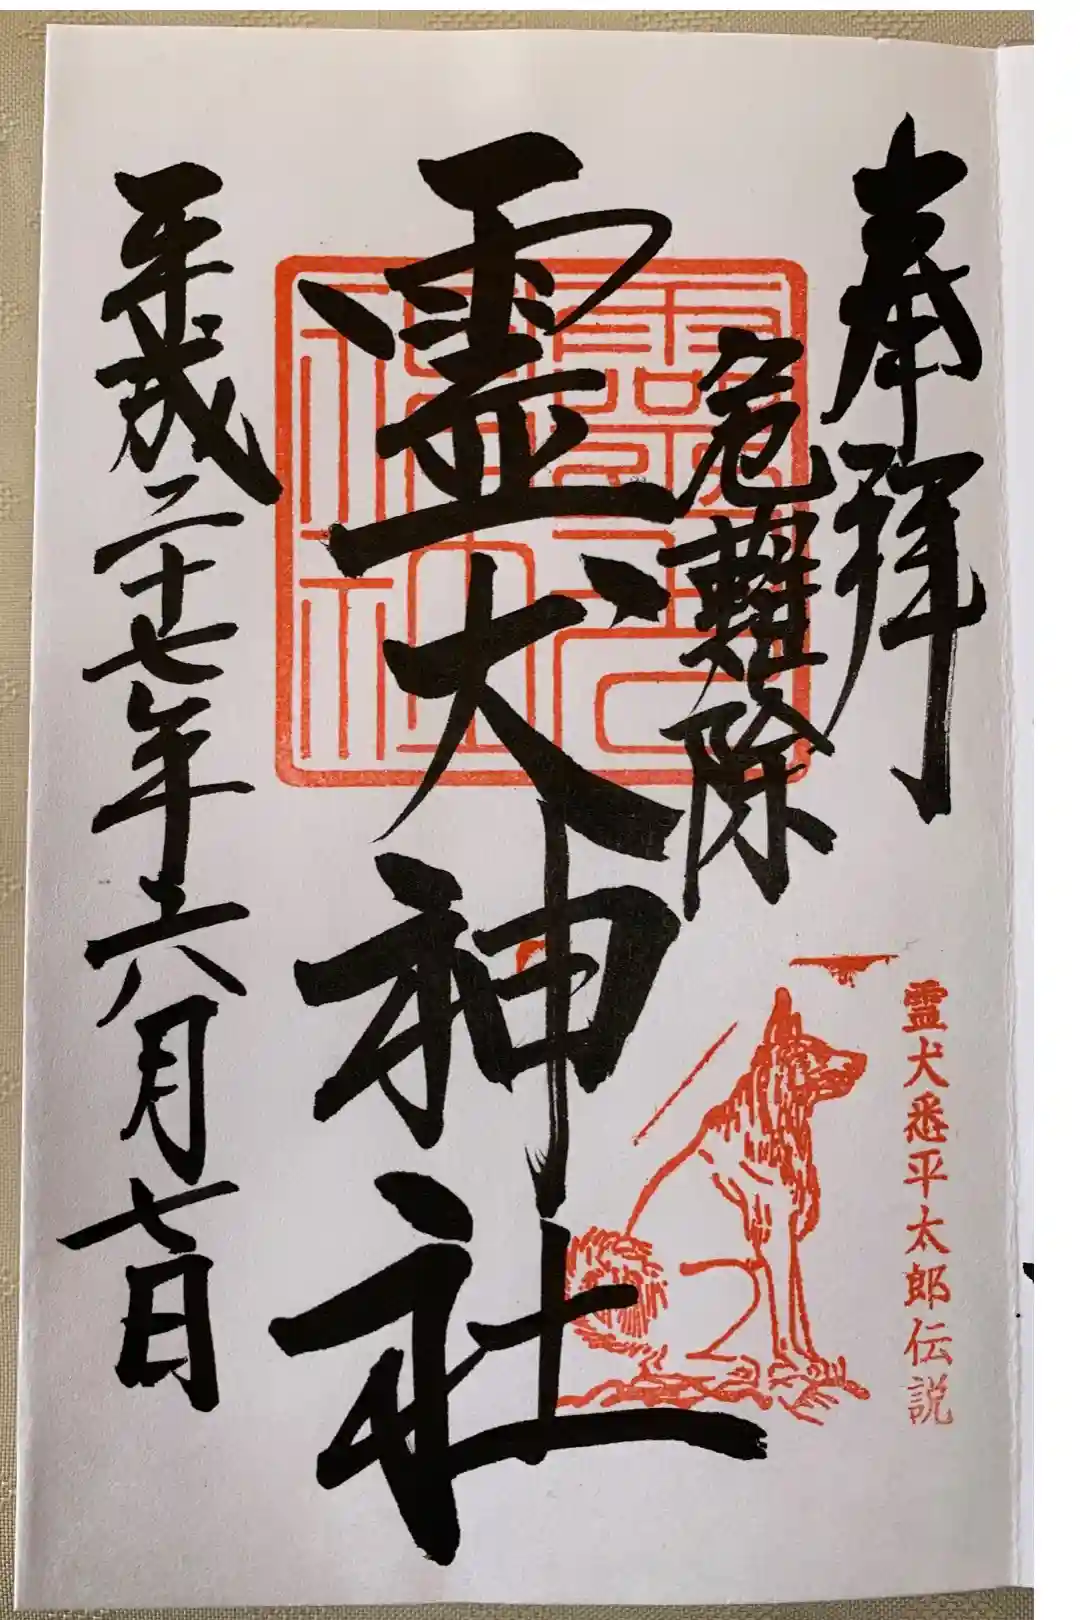 奉拝
危難除
霊犬神社
平成二十七年六月七日
霊犬神社
霊犬悉平太郎伝説